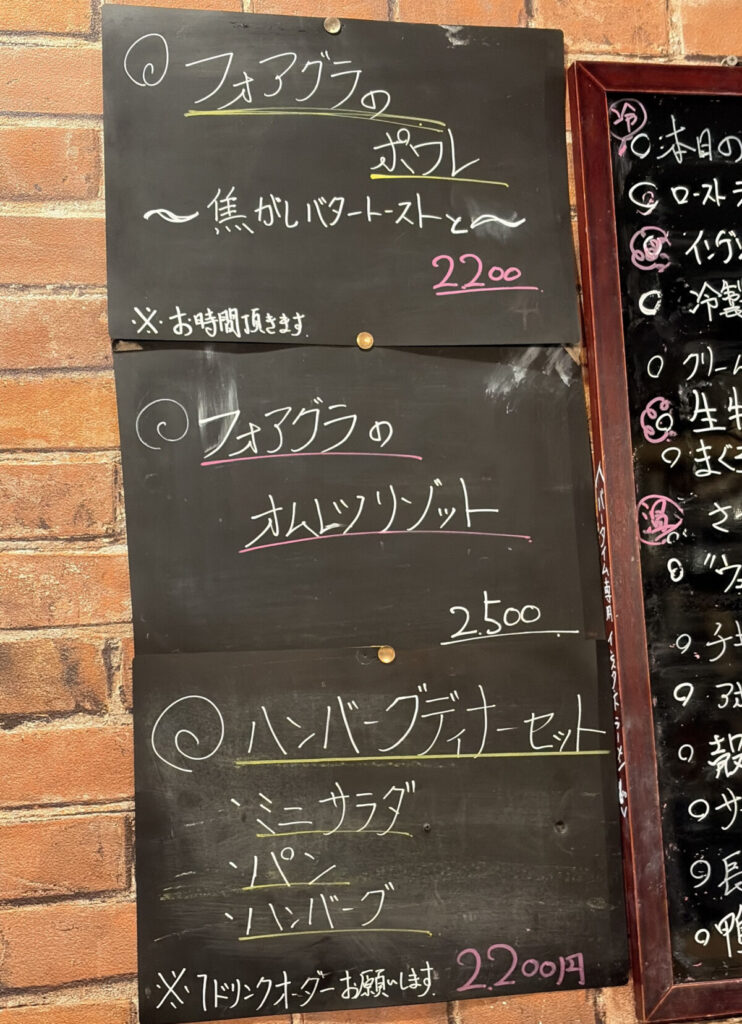 フォアグラの
ポワレ
〜焦がしバタートーストと〜
2200
※お時間頂きます
フォアグラの
オムレツリゾット
2500
ハンバーグディナーセット
・ミニサラダ
・パン
・ハンバーグ
※1ドリンクオーダーお願いします
2200円
冷
本日の
ロースト
冷製
クリーム
温
殻
長
鴨